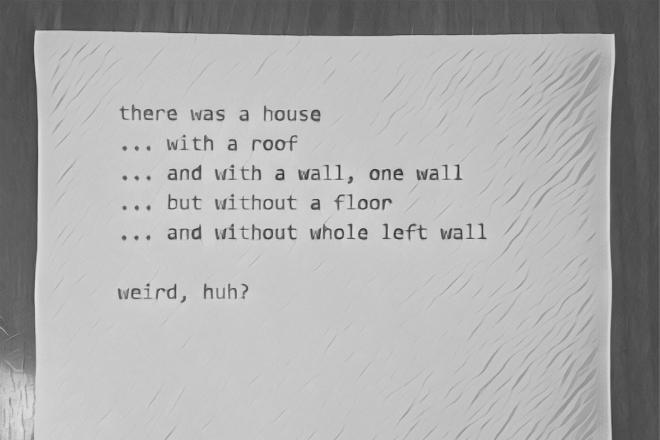 there was a house
... with a roof
... and with a wall, one wall
... but without a floor
... and without whole left wall
weird, huh?